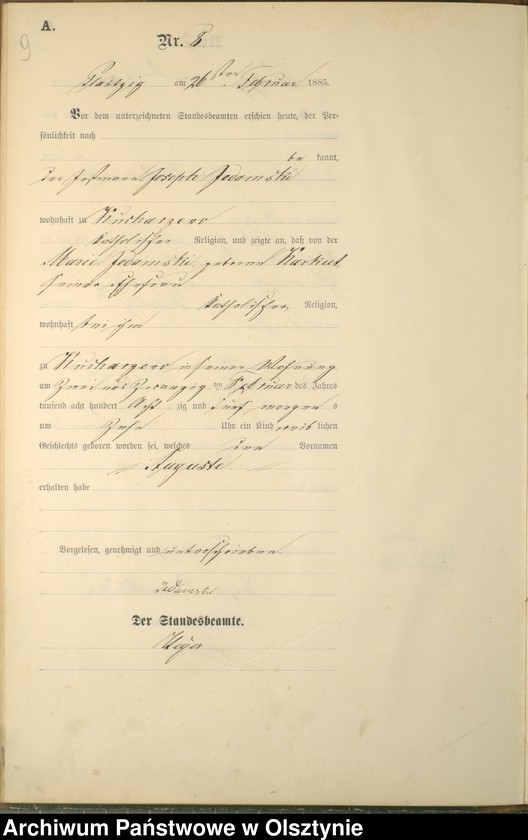 A.
9
Nr. 8
am 26 ten Februar 1885.
Vor dem unterzeichneten Standesbeamten erschien heute, der Per-
sönlichkeit nach
be kannt,
der Joseph Jedamski
wohnhaft zu Kuchargero
katholischer Religion, und zeigte an, daß von der
Marie Jedamski geborene Karkut,
seiner Ehefrau
katholischer Religion,
wohnhaft bei ihm
zu Kuchargero in seiner Wohnung
am zwei und zwanzig ten Februar des Jahres
tausend acht hundert Acht zig und fünf morgen s
um Zehn Uhr ein Kind weib lichen
Geschlechts geboren worden sei, welches den Vornamen
Auguste
erhalten habe
Vorgelesen, genehmigt und unterschrieben
Jedamski
Der Standesbeamte.
Archiwum Państwowe w Olsztynie